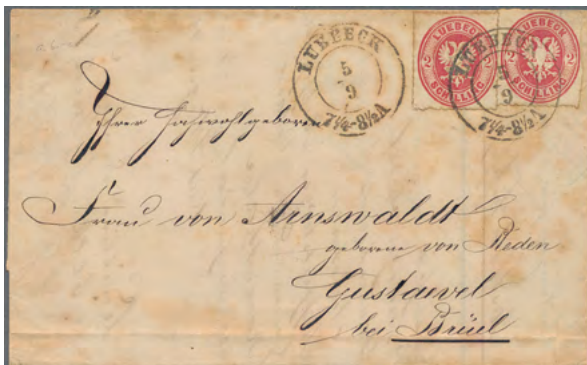 LUEBECK
5
9
7¼-8½A
LUEBECK
2 2
SCHILLING
LUEBECK
2 2
SCHILLING
LUEBECK
5
9
7¼-8½A
Ihrer Hochwohlgeboren
Frau von Arnswaldt
geborene von Reden
Gustaevel
bei Brüel